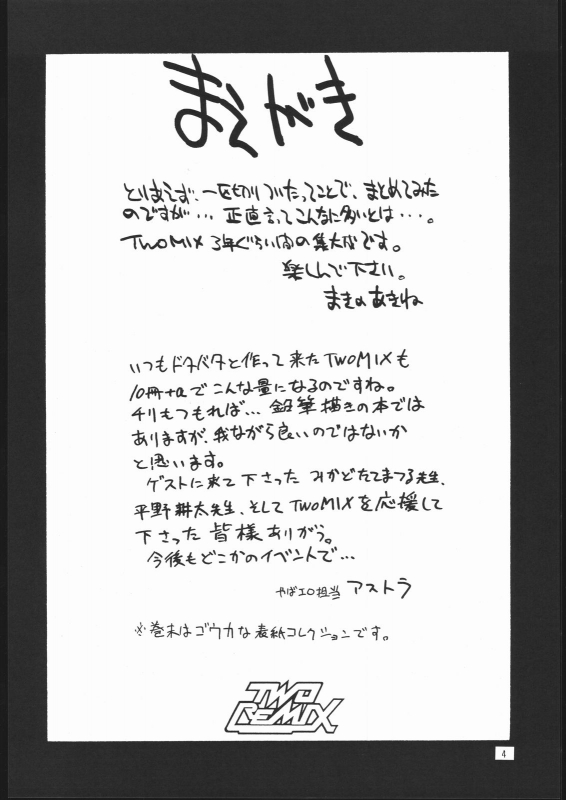 まえがき
とりあえず、一区切りついたってことで、まとめてみた
のですが… 正直言ってこんなに多いとは…。
TWOMIX 3年ぐらい内の集大成です。
楽しんで下さい。
まきのあきね
いつもドタバタと作って来たTWOMIXも
10冊+αでこんな量になるのですね。
チリもつもれば… 鉛筆描きの本では
ありますが、我ながら良いのではないか
と思います。
ゲストに来て下さった みかどたてまつる先生、
平野耕太先生、そしてTWOMIXを応援して
下さった 皆様ありがう。
今後もどこかのイベントで…
やばエロ担当 アストラ
※巻末はゴウカな表紙コレクションです。
TWO
REMIX
4